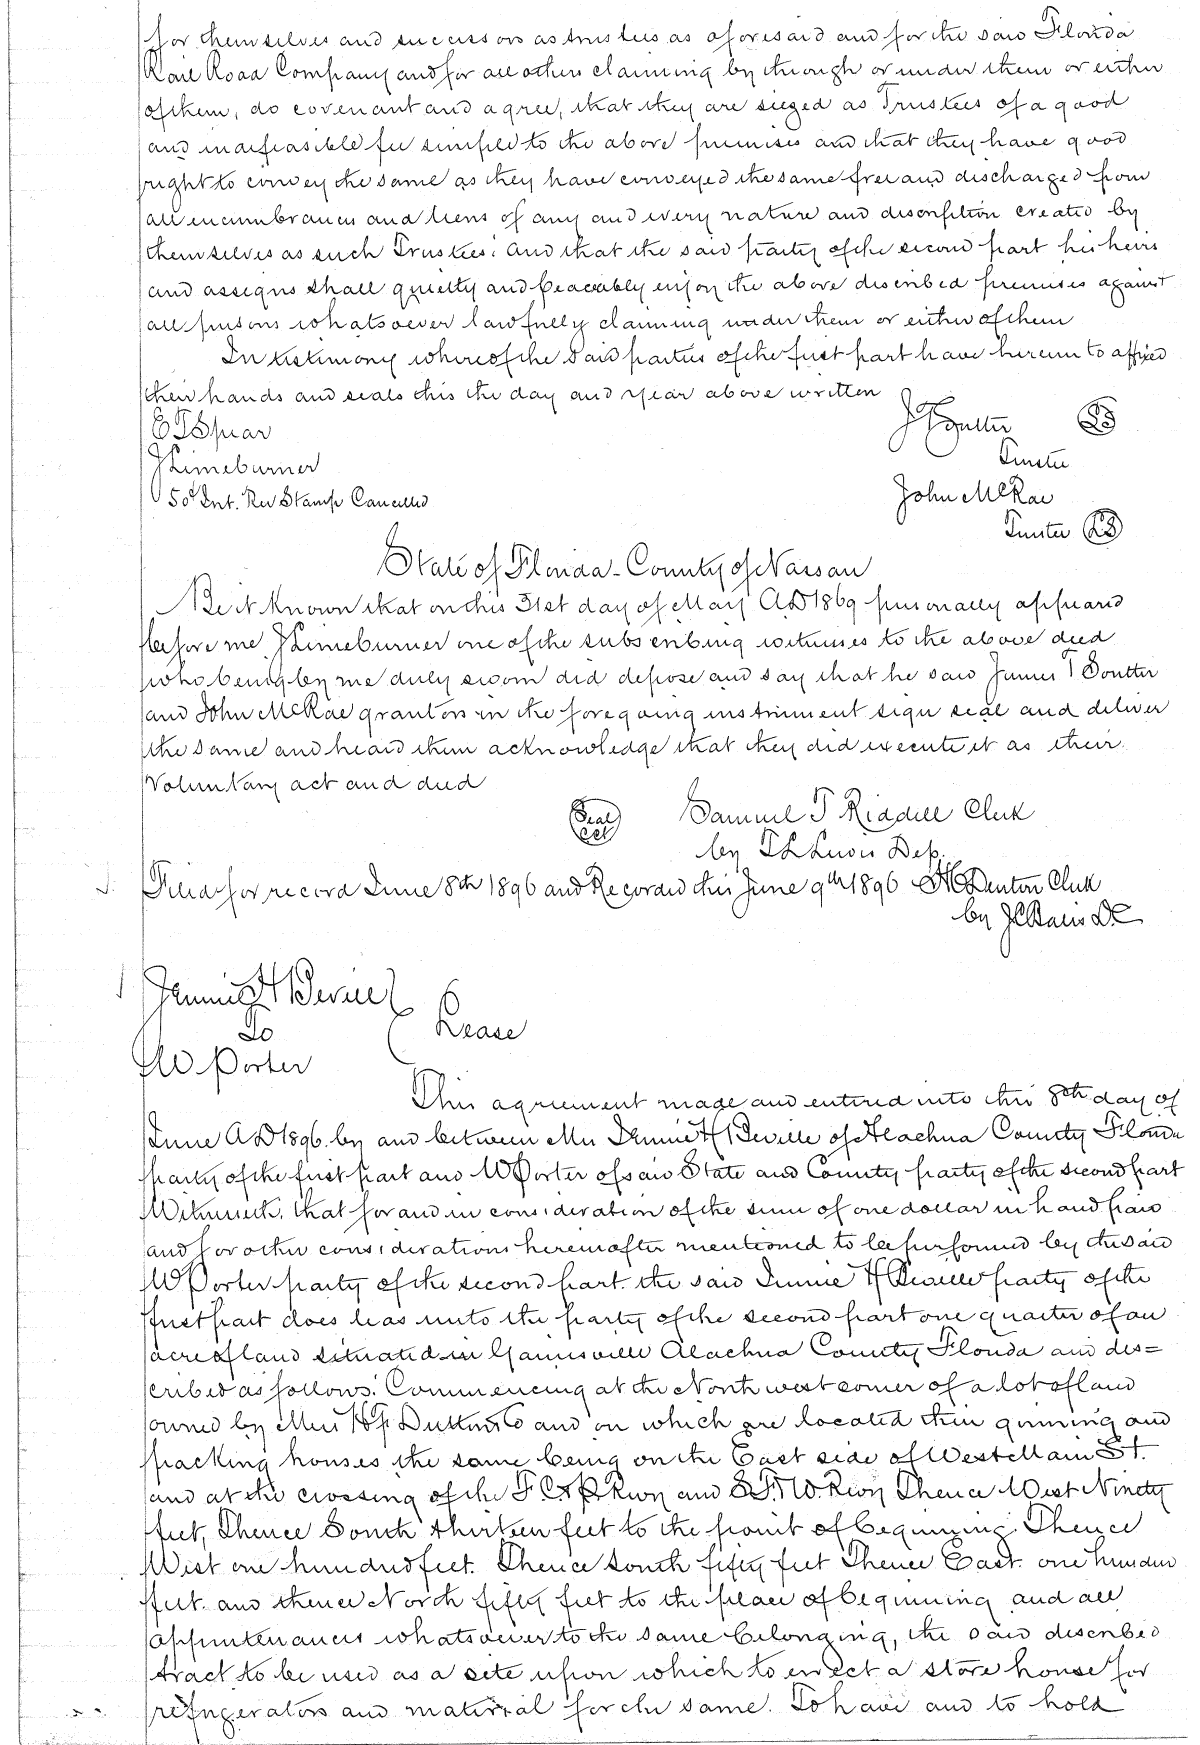 for themselves and successors as trustees as aforesaid and for the said Florida
Rail Road Company and for all others claiming by through or under them or either
of them, do covenant and agree, that they are siezed as Trustees of a good
and indefeasible fee simple to the above premises and that they have good
right to convey the same as they have conveyed the same free and discharged from
all encumbrances and liens of any and every nature and discription created by
themselves as such Trustees: and that the said party of the second part his heirs
and assigns shall quietly and peaceably enjoy the above described premises against
all persons whatsoever lawfully claiming under them or either of them
In testimony whereof the said parties of the first part have hereunto affixed
their hands and seals this the day and year above written
E T Spear
J Limeburner
50¢ Int. Rev Stamp Cancelled
J T Soutter LS
Trustee
John McRae
Trustee LS
State of Florida - County of Nassau
Be it Known that on this 31st day of May AD 1869 personally appeared
before me J Limeburner one of the subscribing witnesses to the above deed
who being by me duly sworn did depose and say that he saw James T Soutter
and John McRae grantors in the foregoing instrument sign seal and deliver
the same and heard them acknowledge that they did execute it as their
Voluntary act and deed
Seal Cct
Samuel T Riddell Clerk
by T L Lewis Dep.
Filed for record June 8th 1896 and Recorded this June 9th 1896 H C Denton Clerk
by J C Davis D C
Jennie H Beville
To
W Porter
Lease
This agreement made and entered into this 8th day of
June AD 1896 by and between Mrs Jennie H Beville of Alachua County Florida
party of the first part and W Porter of said State and County party of the second part
Witnesseth, that for and in consideration of the sum of one dollar in hand paid
and for other considerations hereinafter mentioned to be performed by the said
W Porter party of the second part. the said Jennie H Beville party of the
first part does leas unto the party of the second part one quarter of an
acre of land situated in Gainesville Alachua County Florida and des=
cribed as follows: Commencing at the North west corner of a lot of land
owned by Mess H F Dutton & Co and on which are located their ginning and
packing houses the same being on the East side of West Main St.
and at the crossing of the F. C & P Rwy and S. F. & W. Rwy Thence West Ninety
feet, Thence South thirteen feet to the point of beginning. Thence
West one hundred feet. Thence South fifty feet Thence East one hundred
feet. and thence North fifty feet to the place of beginning and all
appurtenances whatsoever to the same belonging, the said described
tract to be used as a site upon which to erect a store house for
refrigerators and material for the same. To have and to hold